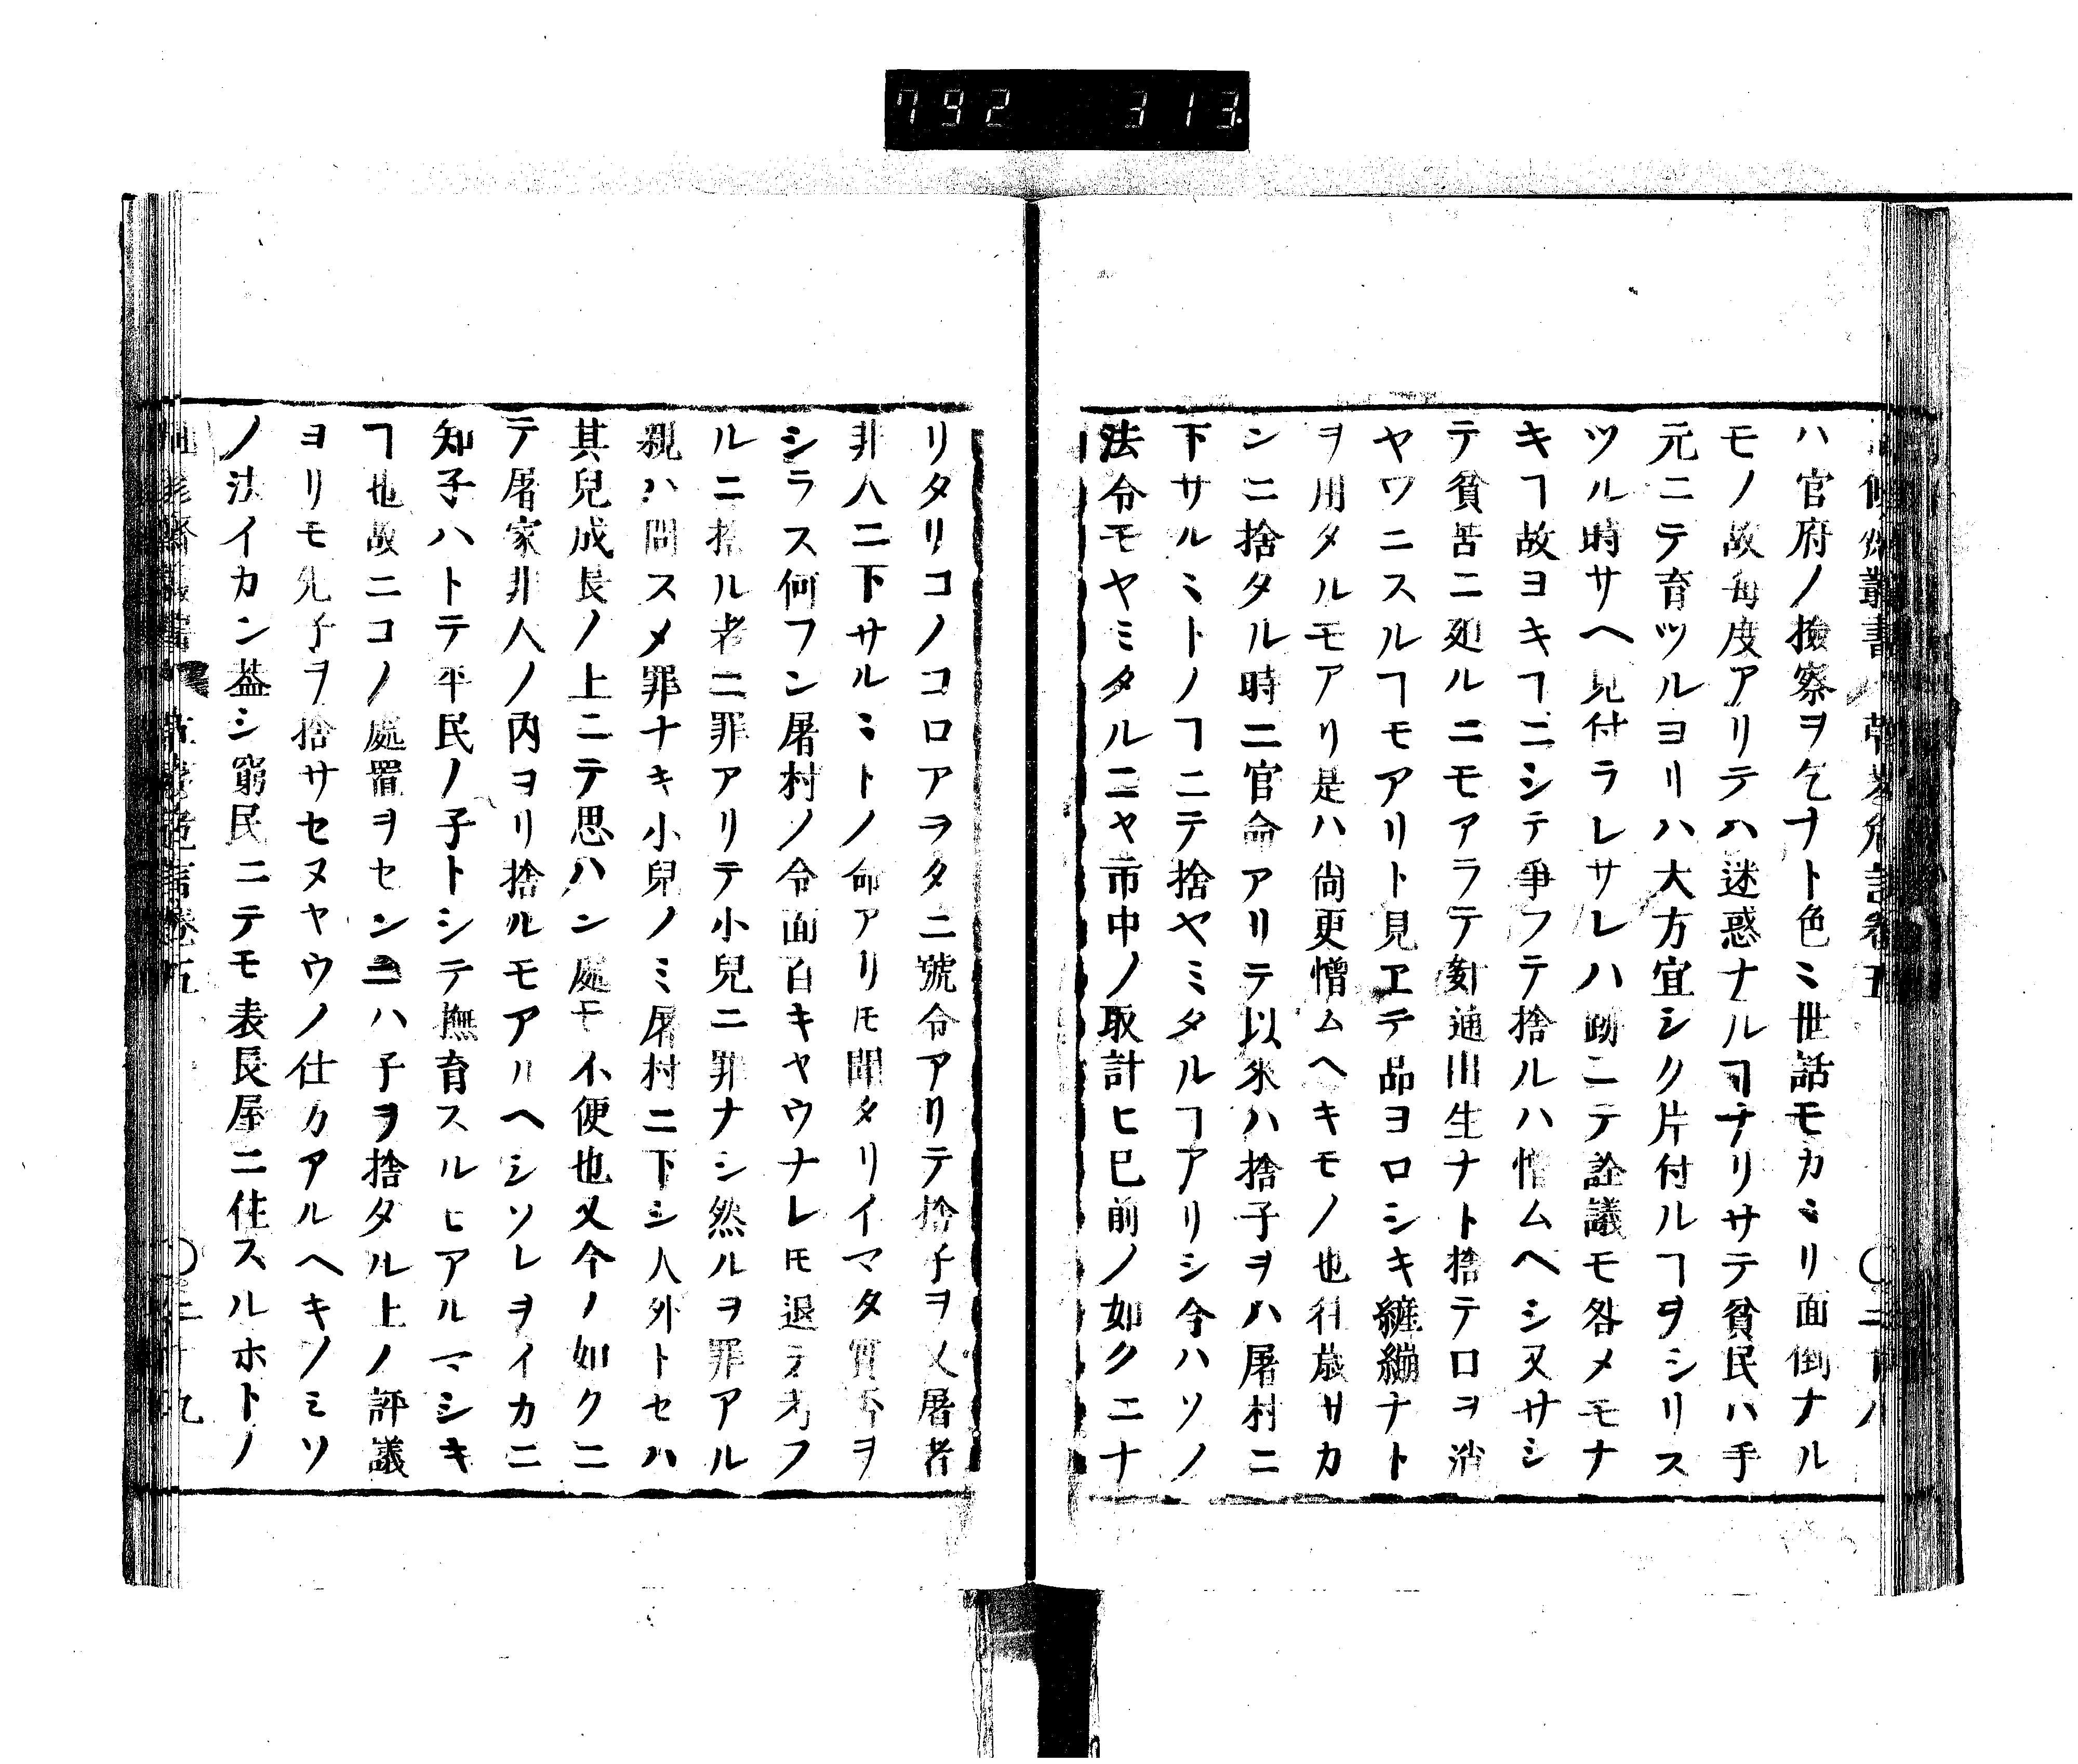 792 313
ハ官府ノ撿察ヲ乞ナト色ミ世話モカミリ面倒ナル
モノ故毎度アリテハ迷惑ナルヿナリサテ貧民ハ手
元ニテ育ツルヨリハ大方宜シク片付ルヿヲシリス
ツル時サヘ見付ラレサレハ跡ニテ詮議モ咎メモナ
キヿ故ヨキヿニシテ爭フテ捨ルハ憎ムヘシ又サシ
テ貧苦ニ廹ルニモアラテ姦通出生ナト捨テ口ヲ消
ヤワニスルヿモアリト見ヱテ品ヨロシキ纏繃ナト
ヲ用タルモアリ是ハ尚更憎ムヘキモノ也往歳サカ
ンニ捨タル時ニ官命アリテ以來ハ捨子ヲハ屠村ニ
下サルミトノヿニテ捨ヤミタルヿアリシ今ハソノ
法令モヤミタルニヤ市中ノ取計ヒ已前ノ如クニナ
リタリコノコロアヲタニ號令アリテ捨子ヲ又屠者
非人ニ下サルミトノ命アリモ聞タリイマタ實否ヲ
シラス何フン屠村ノ令面白キヤウナレモ退テ考フ
ルニ捨ル者ニ罪アリテ小兒ニ罪ナシ然ルヲ罪アル
親ハ問スメ罪ナキ小兒ノミ屠村ニ下シ人外トセハ
其兒成長ノ上ニテ思ハン處モ不便也又今ノ如クニ
テ屠家非人ノ内ヨリ捨ルモアルヘシソレヲイカニ
知子ハトテ平民ノ子トシテ撫育スルヒアルマシキ
ヿ也故ニコノ處置ヲセンニハ子ヲ捨タル上ノ評議
ヨリモ先子ヲ捨サセヌヤウノ仕カアルヘキノミソ
ノ法イカン葢シ窮民ニテモ表長屋ニ住スルホトノ